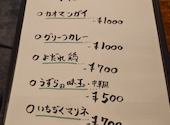 カオマンガイ
-¥1000
グリーンカレー
-¥1000
よだれ鶏
-¥700
うずらの味玉
-¥500
いちじくマリネ
-¥700